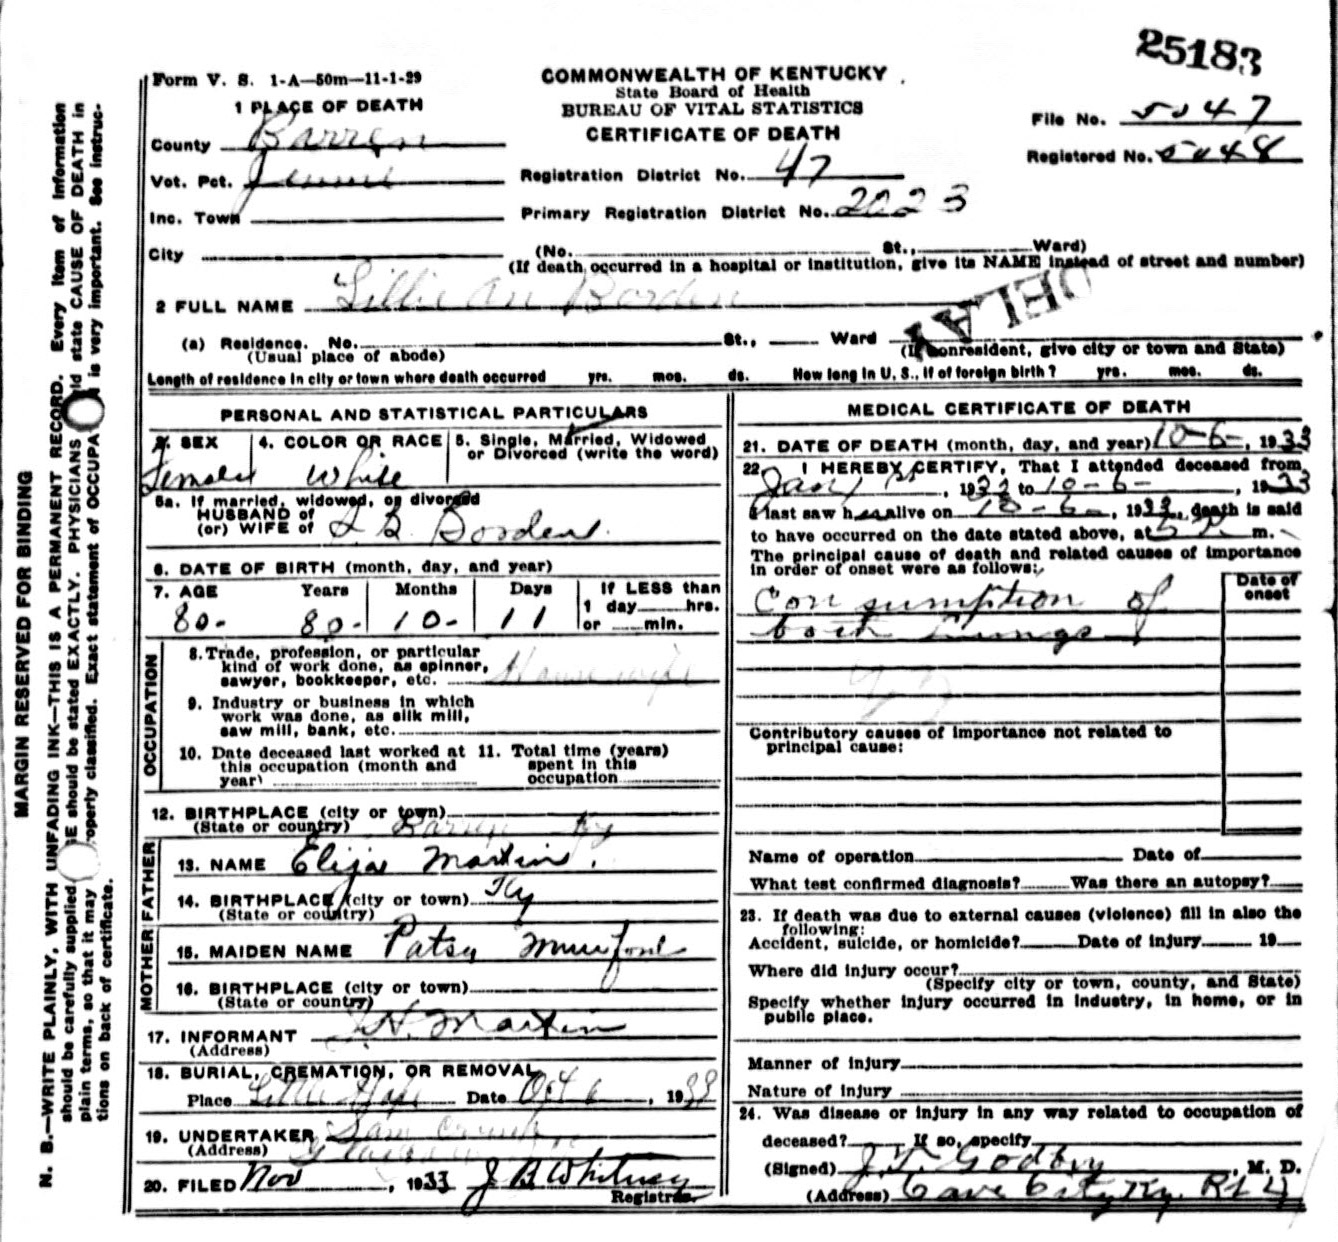 25183
Form V. S. 1-A—50m—11-1-29
COMMONWEALTH OF KENTUCKY
State Board of Health
BUREAU OF VITAL STATISTICS
CERTIFICATE OF DEATH
File No. 5047
Registered No. 5048
1 PLACE OF DEATH
County Barren
Vot. Pct.
Inc. Town
City
Registration District No. 47
Primary Registration District No. 2023
(No. St., Ward)
(If death occurred in a hospital or institution, give its NAME instead of street and number)
2 FULL NAME Lillie An Borden
DELAY
(a) Residence. No. St., Ward
(Usual place of abode)
(If nonresident, give city or town and State)
Length of residence in city or town where death occurred yrs. mos. ds. How long in U. S., if of foreign birth? yrs. mos. ds.
PERSONAL AND STATISTICAL PARTICULARS
3. SEX 4. COLOR OR RACE 5. Single, Married, Widowed
or Divorced (write the word)
Female White
5a. If married, widowed, or divorced
HUSBAND of
(or) WIFE of L. B. Borden
6. DATE OF BIRTH (month, day, and year)
7. AGE Years Months Days If LESS than
1 day hrs.
or min.
80- 80- 10- 11
OCCUPATION
8. Trade, profession, or particular
kind of work done, as spinner,
sawyer, bookkeeper, etc. House wife
9. Industry or business in which
work was done, as silk mill,
saw mill, bank, etc.
10. Date deceased last worked at
this occupation (month and
year)
11. Total time (years)
spent in this
occupation
12. BIRTHPLACE (city or town)
(State or country) Barren Ky
FATHER
13. NAME Elija Martin
14. BIRTHPLACE (city or town) Ky
(State or country)
MOTHER
15. MAIDEN NAME Patsy
16. BIRTHPLACE (city or town)
(State or country)
17. INFORMANT J. H. Martin
(Address)
18. BURIAL, CREMATION, OR REMOVAL
Place Little Hope Date Oct 6, 1933
19. UNDERTAKER Sam
(Address)
20. FILED Nov, 1933 J B Whitney
Registrar.
MEDICAL CERTIFICATE OF DEATH
21. DATE OF DEATH (month, day, and year) 10-6-, 1933
22. I HEREBY CERTIFY, That I attended deceased from
Jan 1st, 1933 to 10-6-, 1933
I last saw her alive on 10-6-, 1933, death is said
to have occurred on the date stated above, at m.
The principal cause of death and related causes of importance
in order of onset were as follows:
Date of
onset
Consumption of
both lungs
Contributory causes of importance not related to
principal cause:
Name of operation Date of
What test confirmed diagnosis? Was there an autopsy?
23. If death was due to external causes (violence) fill in also the
following:
Accident, suicide, or homicide? Date of injury 19
Where did injury occur?
(Specify city or town, county, and State)
Specify whether injury occurred in industry, in home, or in
public place.
Manner of injury
Nature of injury
24. Was disease or injury in any way related to occupation of
deceased? If so, specify
(Signed) J. T. Godbey, M. D.
(Address) Cave City Ky.
MARGIN RESERVED FOR BINDING
N. B.—WRITE PLAINLY, WITH UNFADING INK—THIS IS A PERMANENT RECORD. Every item of information
should be carefully supplied. should be stated EXACTLY. PHYSICIANS state CAUSE OF DEATH in
plain terms, so that it may properly classified. Exact statement of OCCUPA is very important. See instruc-
tions on back of certificate.